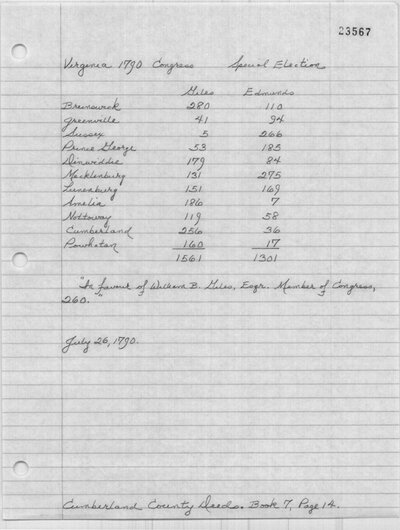 23567
Virginia 1790 Congress Special Election
Giles Edmunds
Brunswick 280 110
Greenville 41 94
Sussex 5 266
Prince George 53 185
Dinwiddie 179 84
Mecklenburg 131 275
Lunenburg 151 169
Amelia 186 7
Nottoway 119 58
Cumberland 256 36
Powhatan 160 17
1561 1301
"In favour of William B. Giles, Esqr. Member of Congress,
260."
July 26, 1790.
Cumberland County Deeds. Book 7, Page 14.